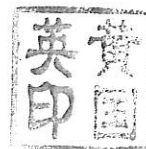 黄
英印